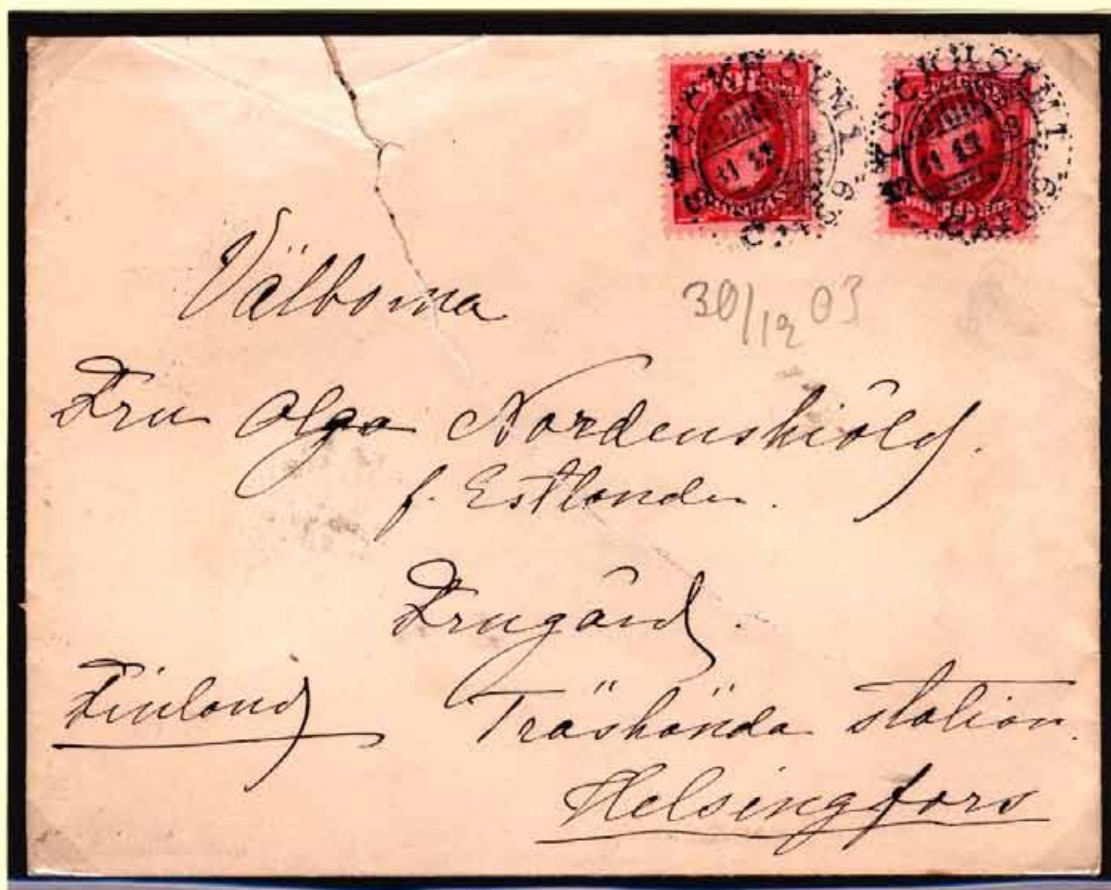 STOCKHOLM 1 STOCKHOLM 1
30/12 03
Välborna
Fru Olga Nordenskiöld.
f. Estlander.
Frugård.
Finland Träskända station.
Helsingfors